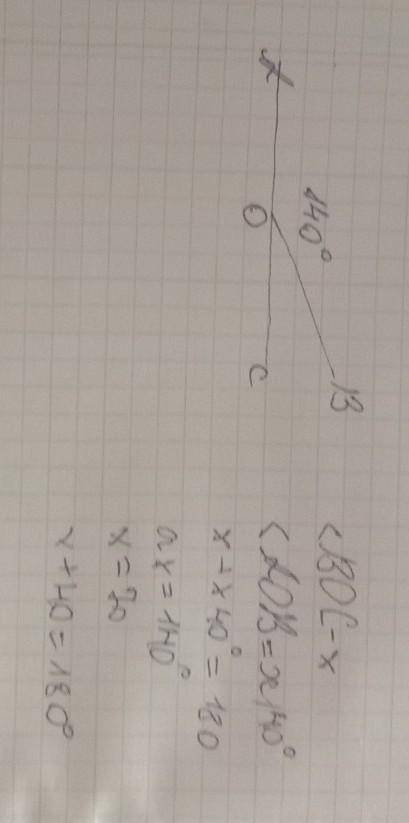 A
O
140°
B
C
<BOC-x
<AOB=x140°
x+x40°=180
2x=140°
x=70
x+40=180°